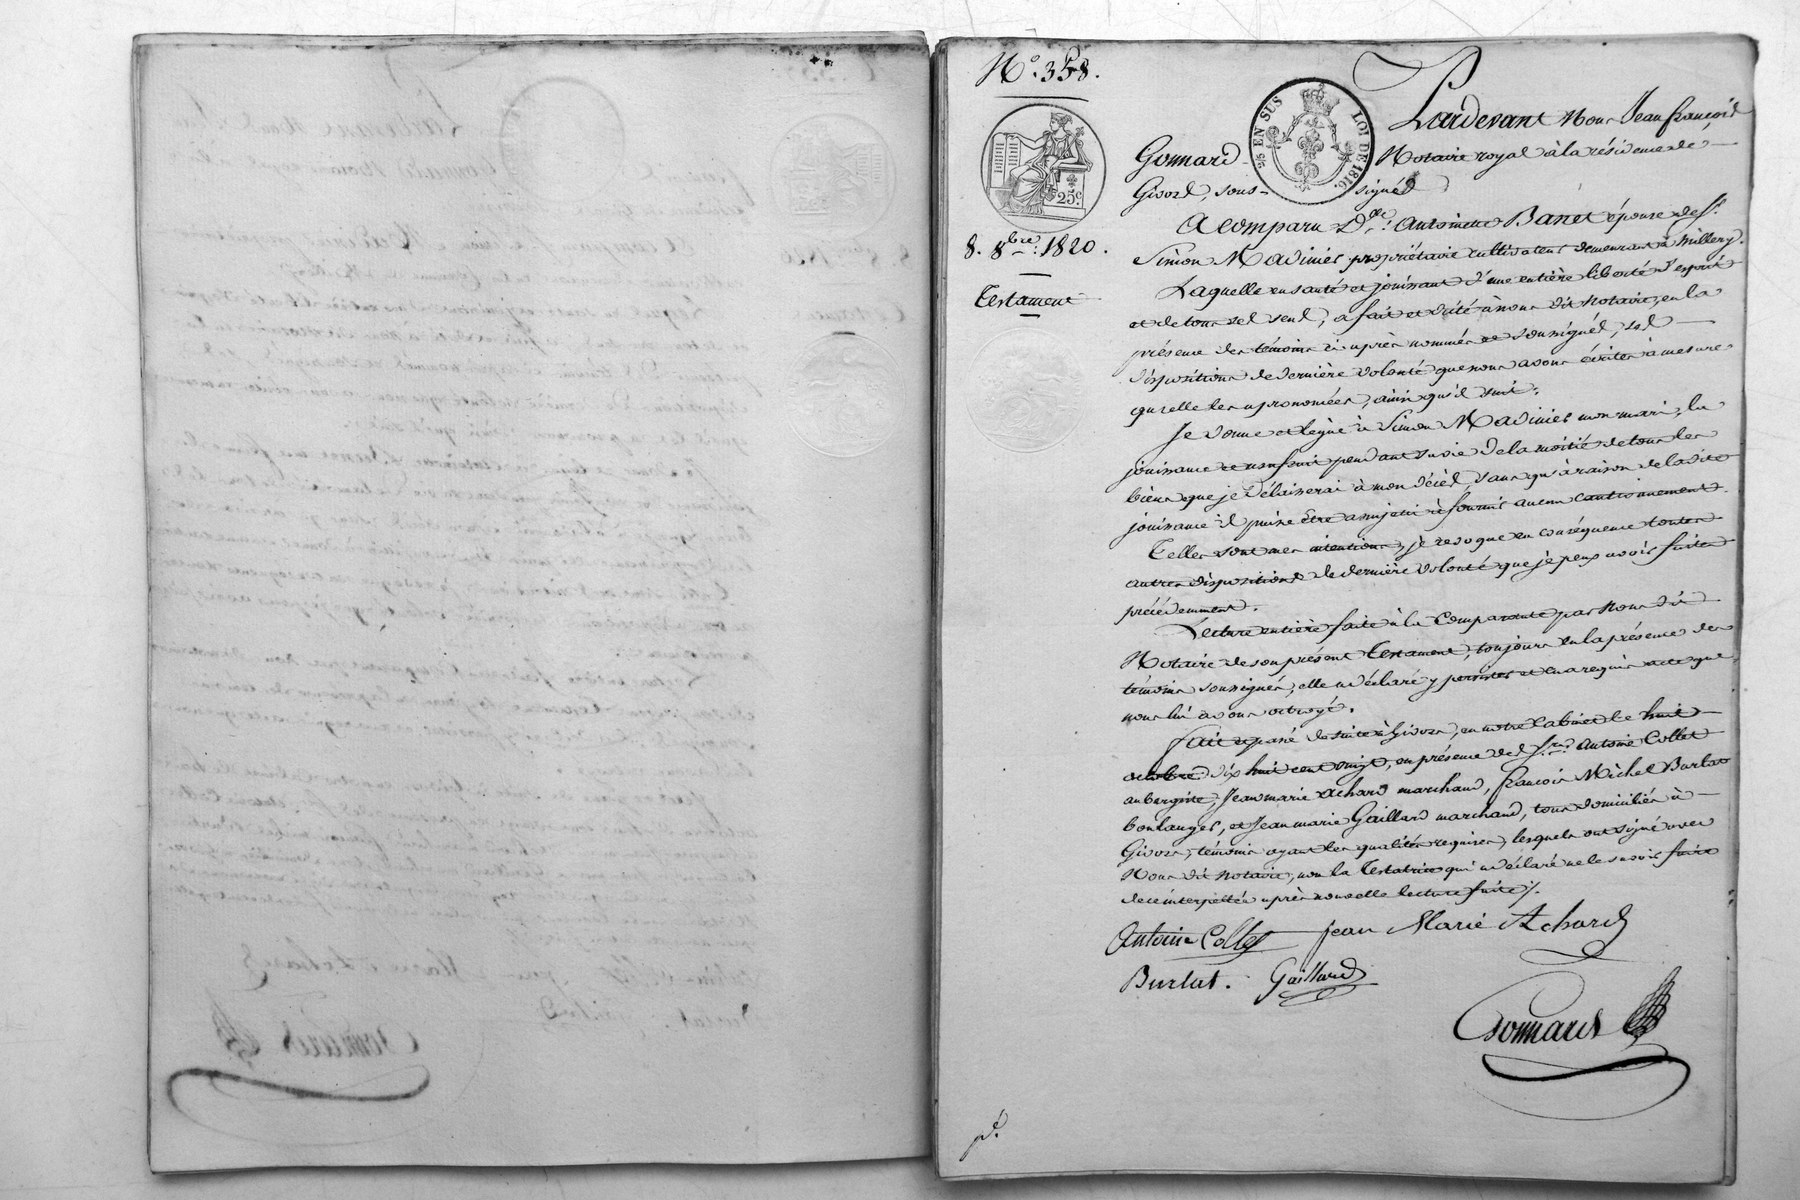 N.° 358.
25c
8. 8bre. 1820.
Testament
2/5 EN SUS
LOI DE 1816.
Pardevant Nous Jean françois
Gonnard Notaire royal à la résidence de
Givors, sous-signé
A comparu D.lle Antoinette Banet épouse de S.r
Simon Madinier propriétaire cultivateur demeurant à Millery.
Laquelle en santé et jouissant d'une entière liberté d'esprit
et de tous ses sens, a fait et dicté à nous dit Notaire, en la
présence des témoins ci après nommés et soussignés, ses
dispositions de dernière volonté que nous avons écrites à mesure
qu'elle les a prononcées, ainsi qu'il suit.
Je donne et lègue à Simon Madinier mon mari, la
jouissance et usufruit pendant sa vie de la moitié de tous les
biens que je délaisserai à mon décès, sans qu'à raison de la dite
jouissance il puisse être assujetti à fournir aucun cautionnement.
Telles sont mes intentions, je révoque en conséquence toutes
autres dispositions de dernière volonté que je peux avoir faites
précédemment.
Lecture entière faite à la Comparante par Nous dit
Notaire de son présent Testament, toujours en la présence des
témoins soussignés, elle a déclaré y persister et en a requis acte que
nous lui avons octroyé.
fait et passé de suite à Givors, en notre Cabinet le huit
octobre dix huit cent vingt, en présence des S.rs Antoine Collet
aubergiste, Jean marie Achard marchand, françois Michel Burlat
boulanger, et Jean marie Gaillard marchand, tous domiciliés à
Givors, témoins ayant les qualités requises, lesquels ont signé avec
Nous dit Notaire, non la Testatrice qui a déclaré ne le savoir faire
de ce interpellée après nouvelle lecture faite ./.
Antoine Collet Jean Marie Achard
Burlat. Gaillard
Gonnard